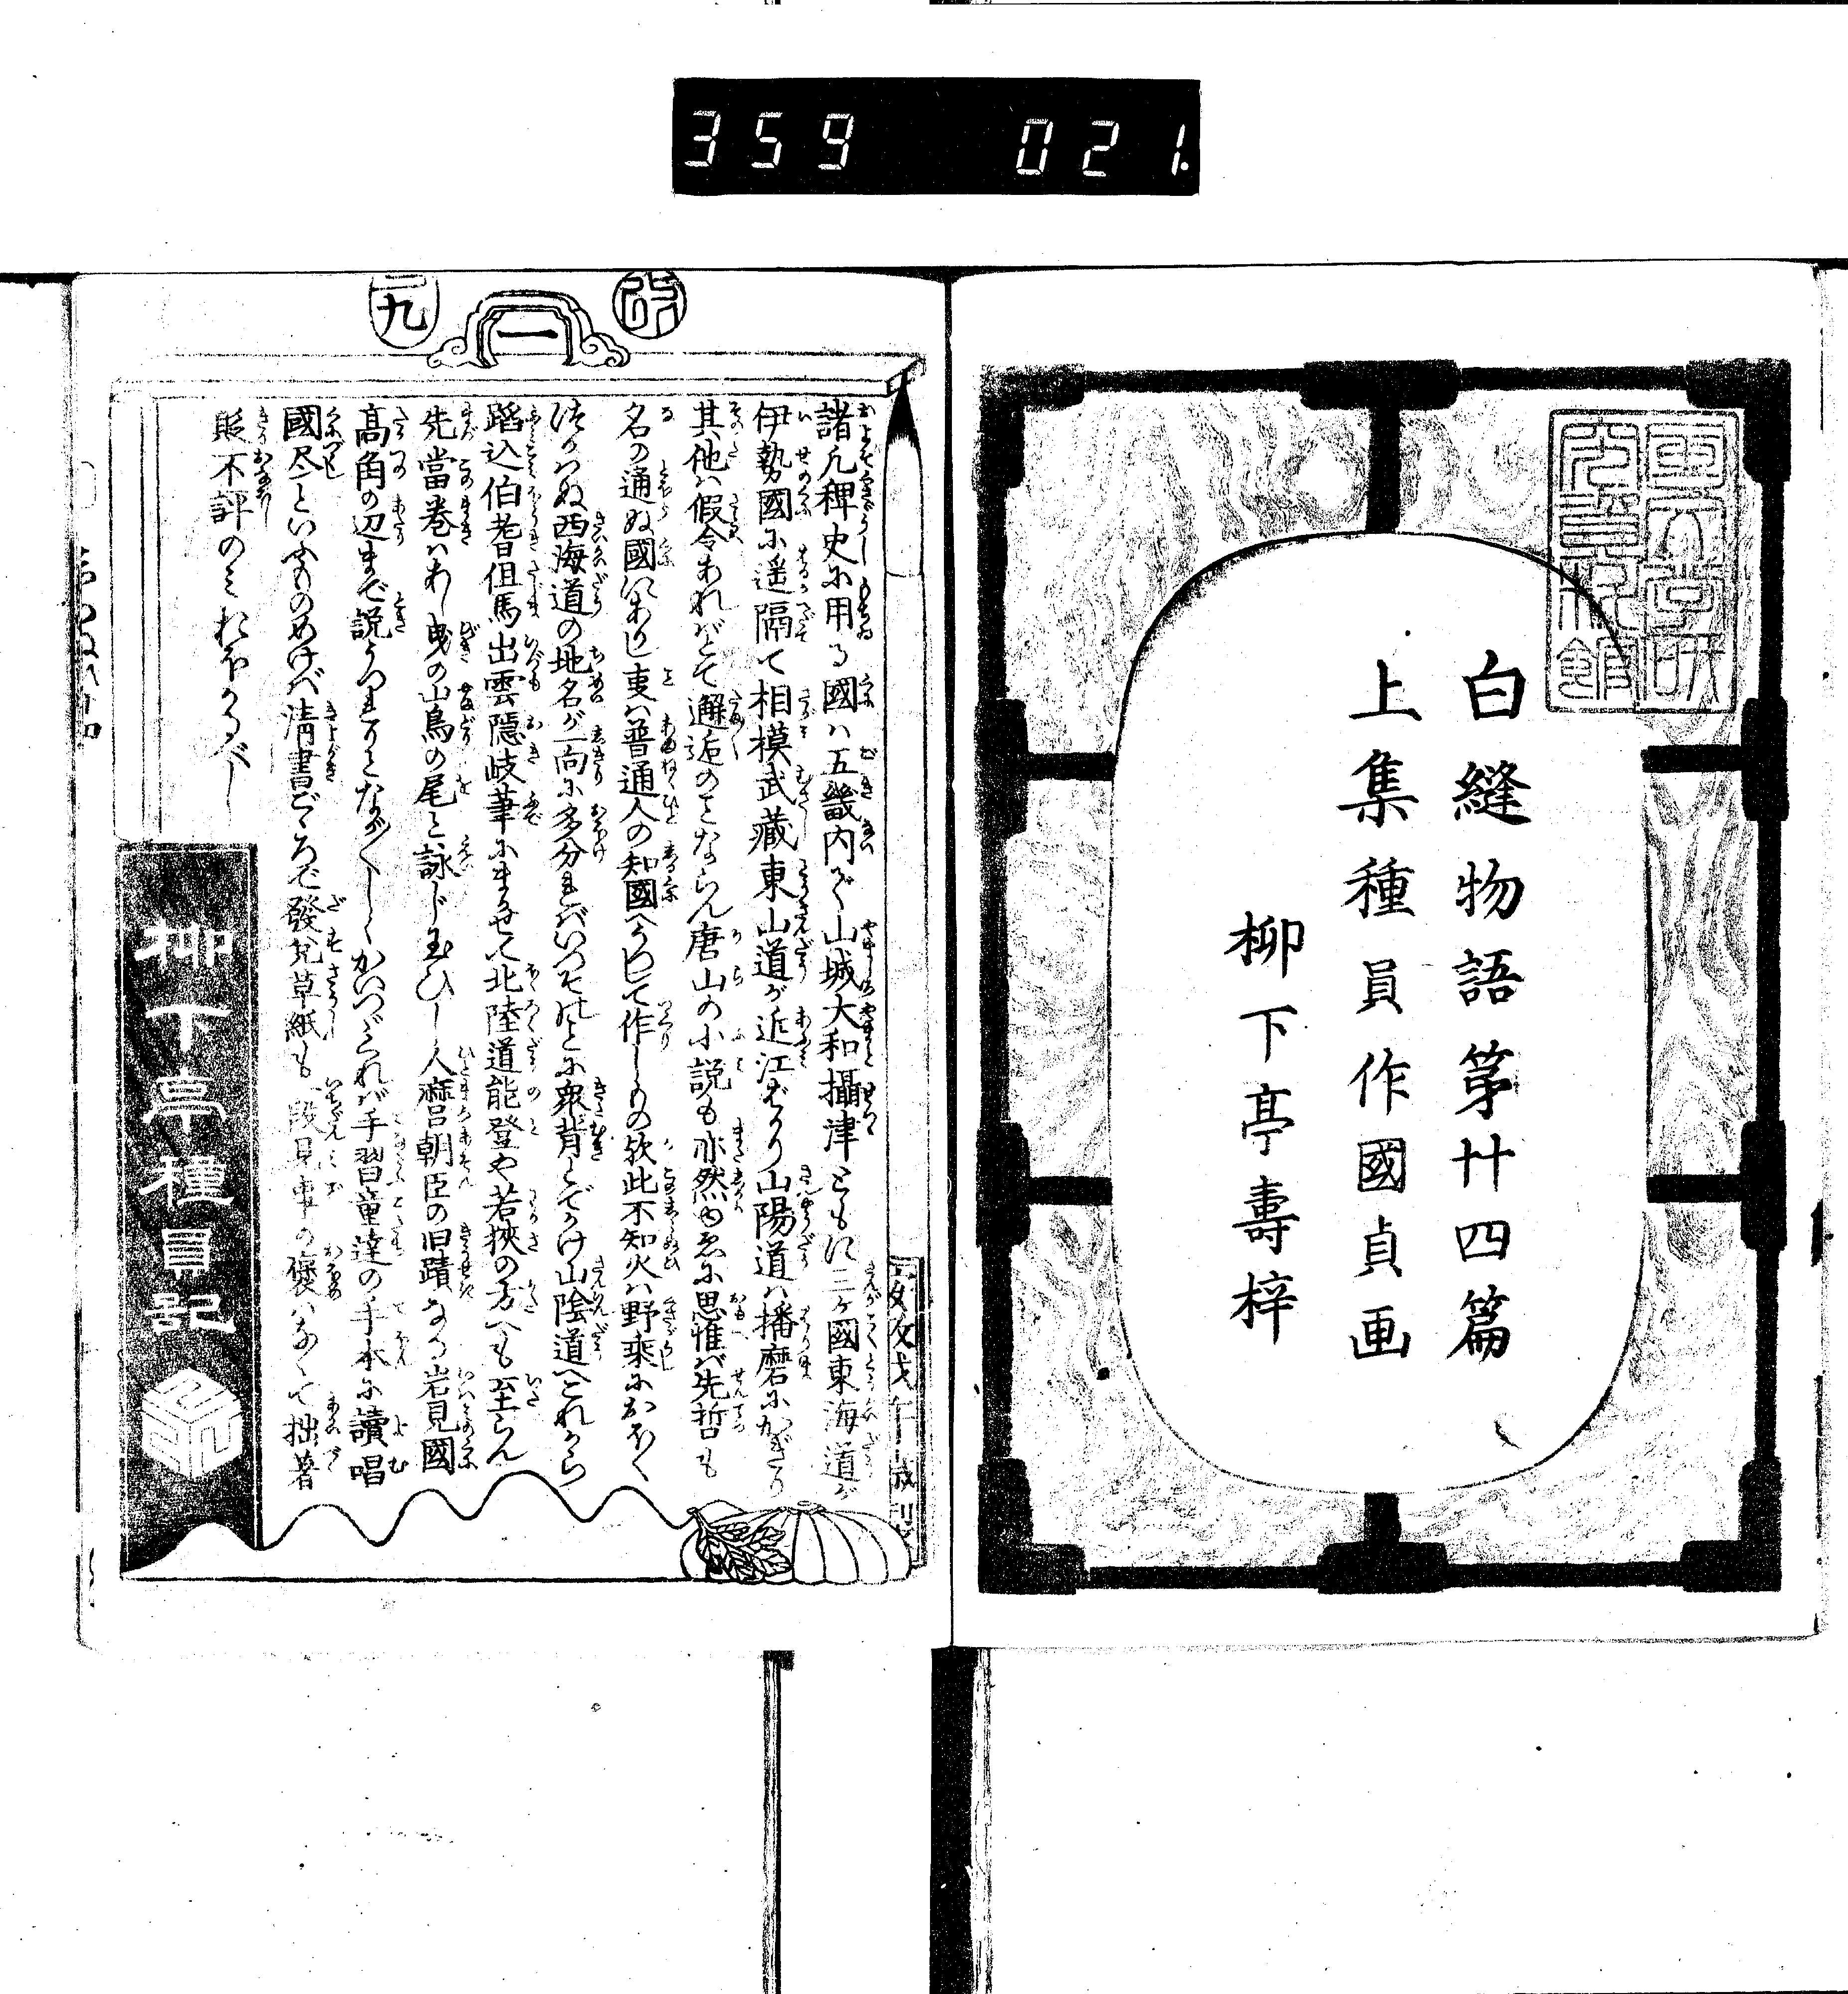 359 021.
白縫物語第廿四篇
上集種員作國貞画
柳下亭壽梓
改
一
九
諸凡稗史に用る國ハ五畿内で山城大和攝津ともに三ケ國東海道が
伊勢國に遥隔て相模武藏東山道が近江ばかり山陽道ハ播磨にかぎり
其他ハ假令あれバとて邂逅のミならん唐山の小説も亦然ゆゑに思惟バ先哲も
名の通ぬ國にありし事ハ普通人の知國へうつして作しもの歟此不知火ハ野乗におほく
つかハぬ西海道の地名が一向に多分
蹈込伯耆但馬出雲隠岐筆にまかせて北陸道能登や若狹の方へも至らん
先當巻ハあし曳の山鳥の尾と詠じ玉ひし人麿朝臣の旧蹟なる岩見國
高角の辺まで説うつせりとなが／＼しくかいつゞくれバ手習童達の手本に讀唱
國尽といふものめけバ清書ごゝろで發兌草紙も一段見事の褒ハなくて拙著
貶不評のミおほかるべし
柳下亭種員記